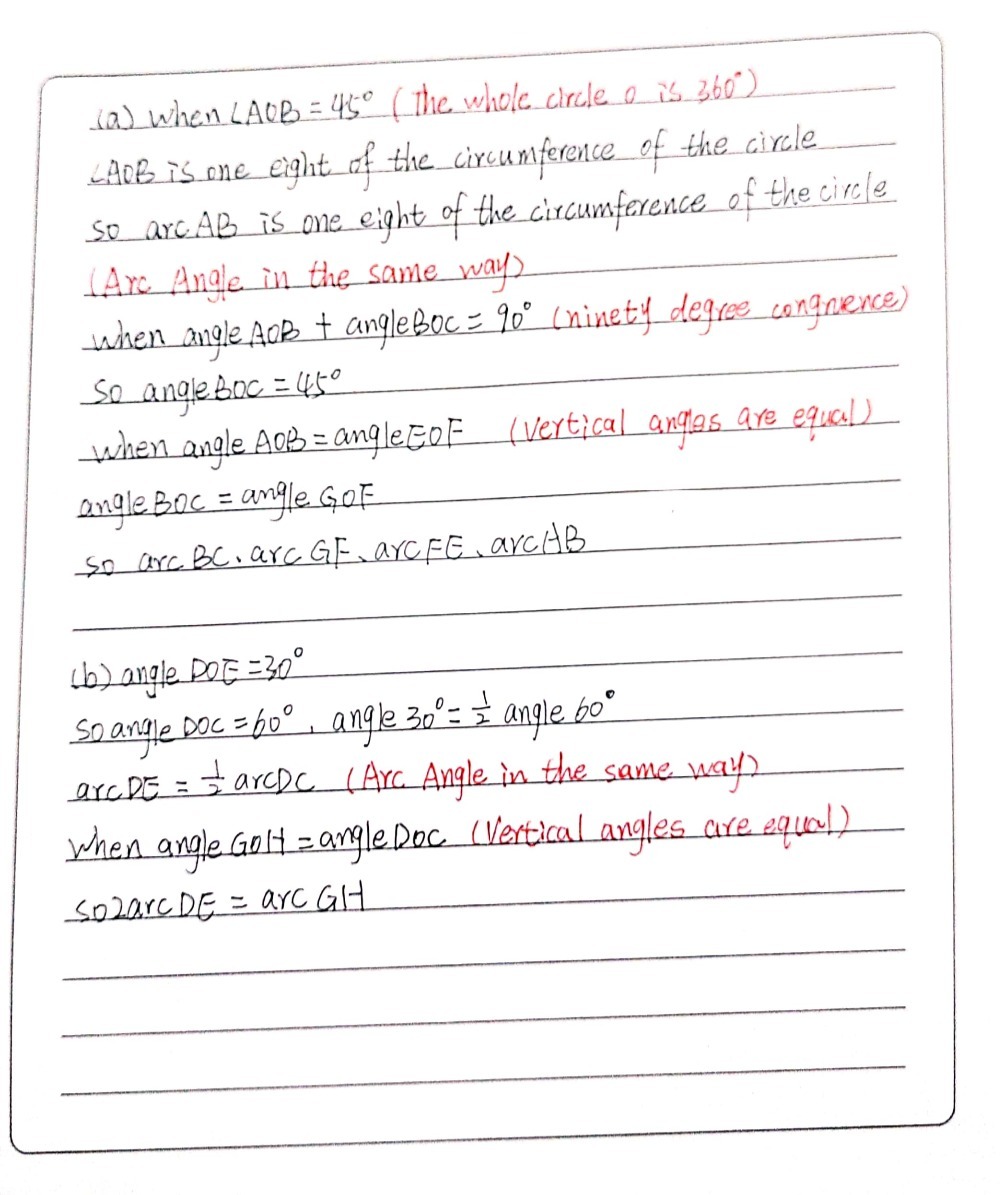 (a) when ∠AOB = 45° (The whole circle o is 360°)
∠AOB is one eight of the circumference of the circle
so arc AB is one eight of the circumference of the circle
(Arc Angle in the same way)
when angle AOB + angle BOC = 90° (ninety degree congruence)
so angle BOC = 45°
when angle AOB = angle EOF (Vertical angles are equal)
angle BOC = angle GOF
so arc BC、arc GF、arc FE、arc AB
(b) angle DOE = 30°
so angle DOC = 60°, angle 30° = 1/2 angle 60°
arc DE = 1/2 arc DC (Arc Angle in the same way)
when angle GOH = angle DOC (Vertical angles are equal)
so 2arc DE = arc GH